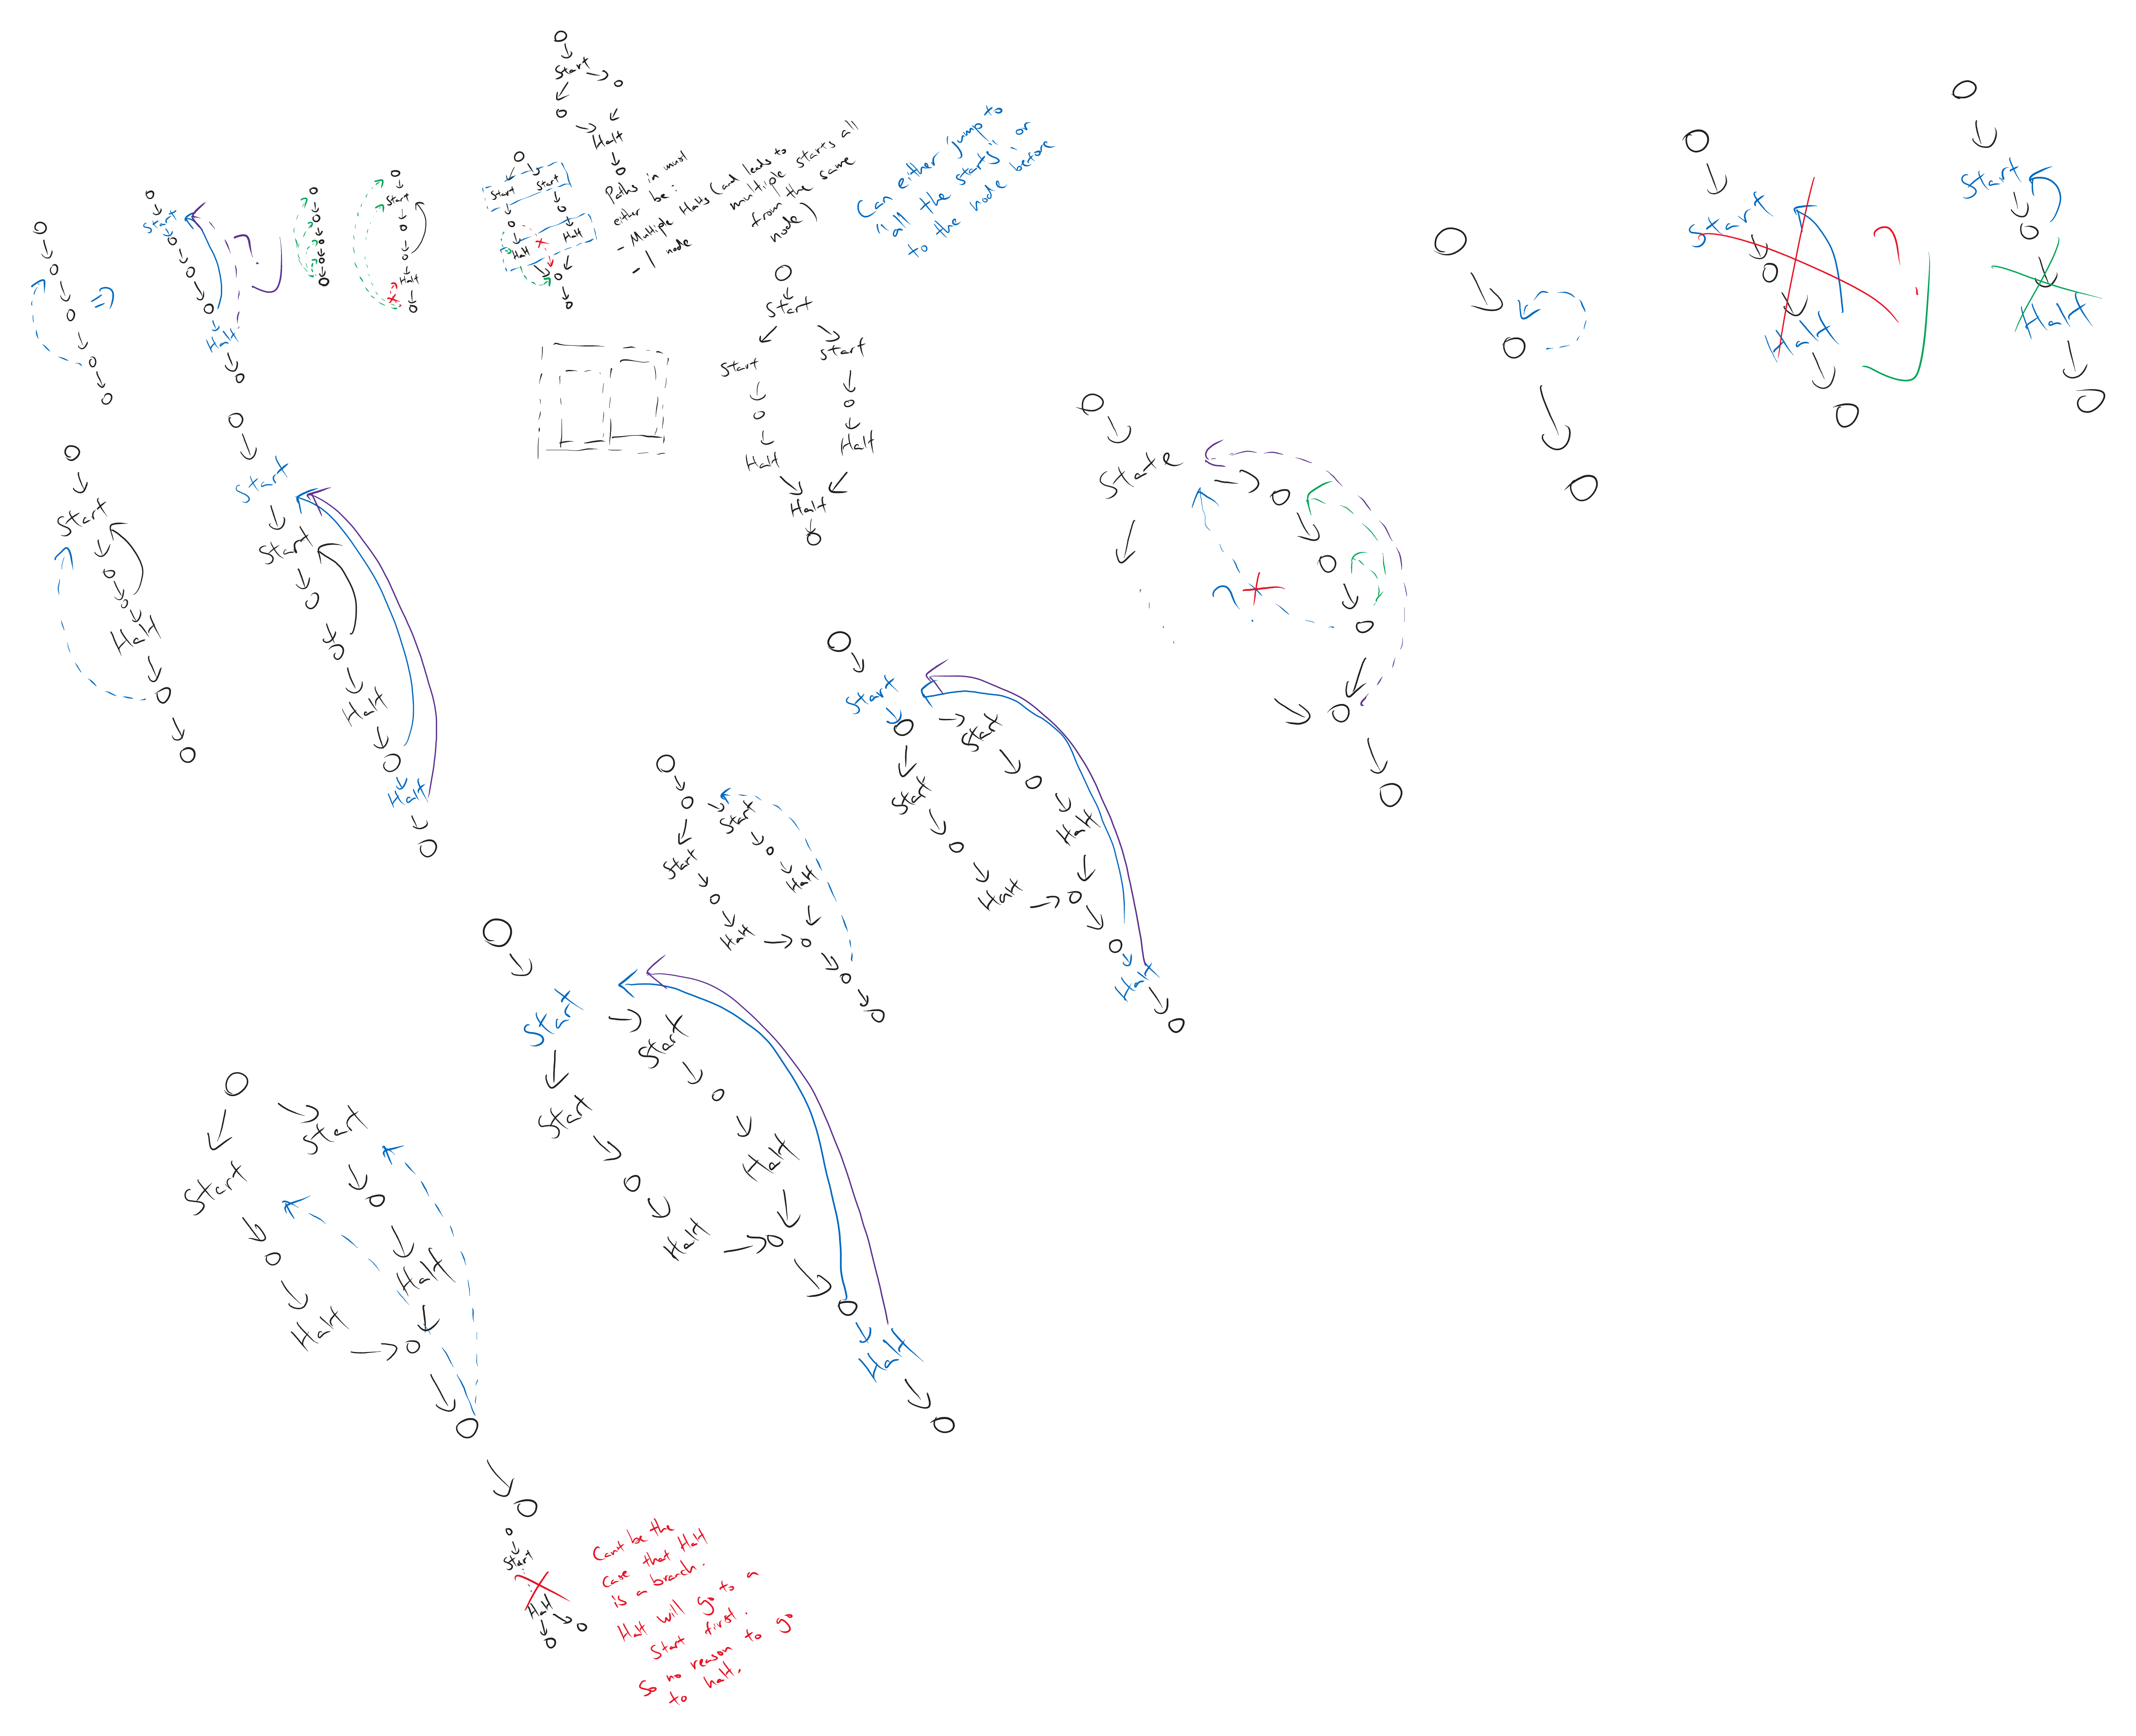 Start
Halt
Start
Halt
Start
Halt
Start
Start
Halt
Halt
Paths in must
either be:
- Multiple Halts (and leads to
multiple starts all
from the same
node)
- 1 node
Can either jump to
"all the starts" or
to the node before
Start
Start
Start
Halt
Halt
Halt
Start
Halt
Start
Halt
Start
Halt
Start
Start
Halt
Halt
State
Start
Start
Start
Halt
Halt
Halt
Start
Start
Halt
Halt
Start
Start
Start
Halt
Halt
Halt
Start
Start
Halt
Halt
Start
Halt
Cant be the
case that Halt
is a branch.
Halt will go to a
Start first.
So no reason to go
to halt.